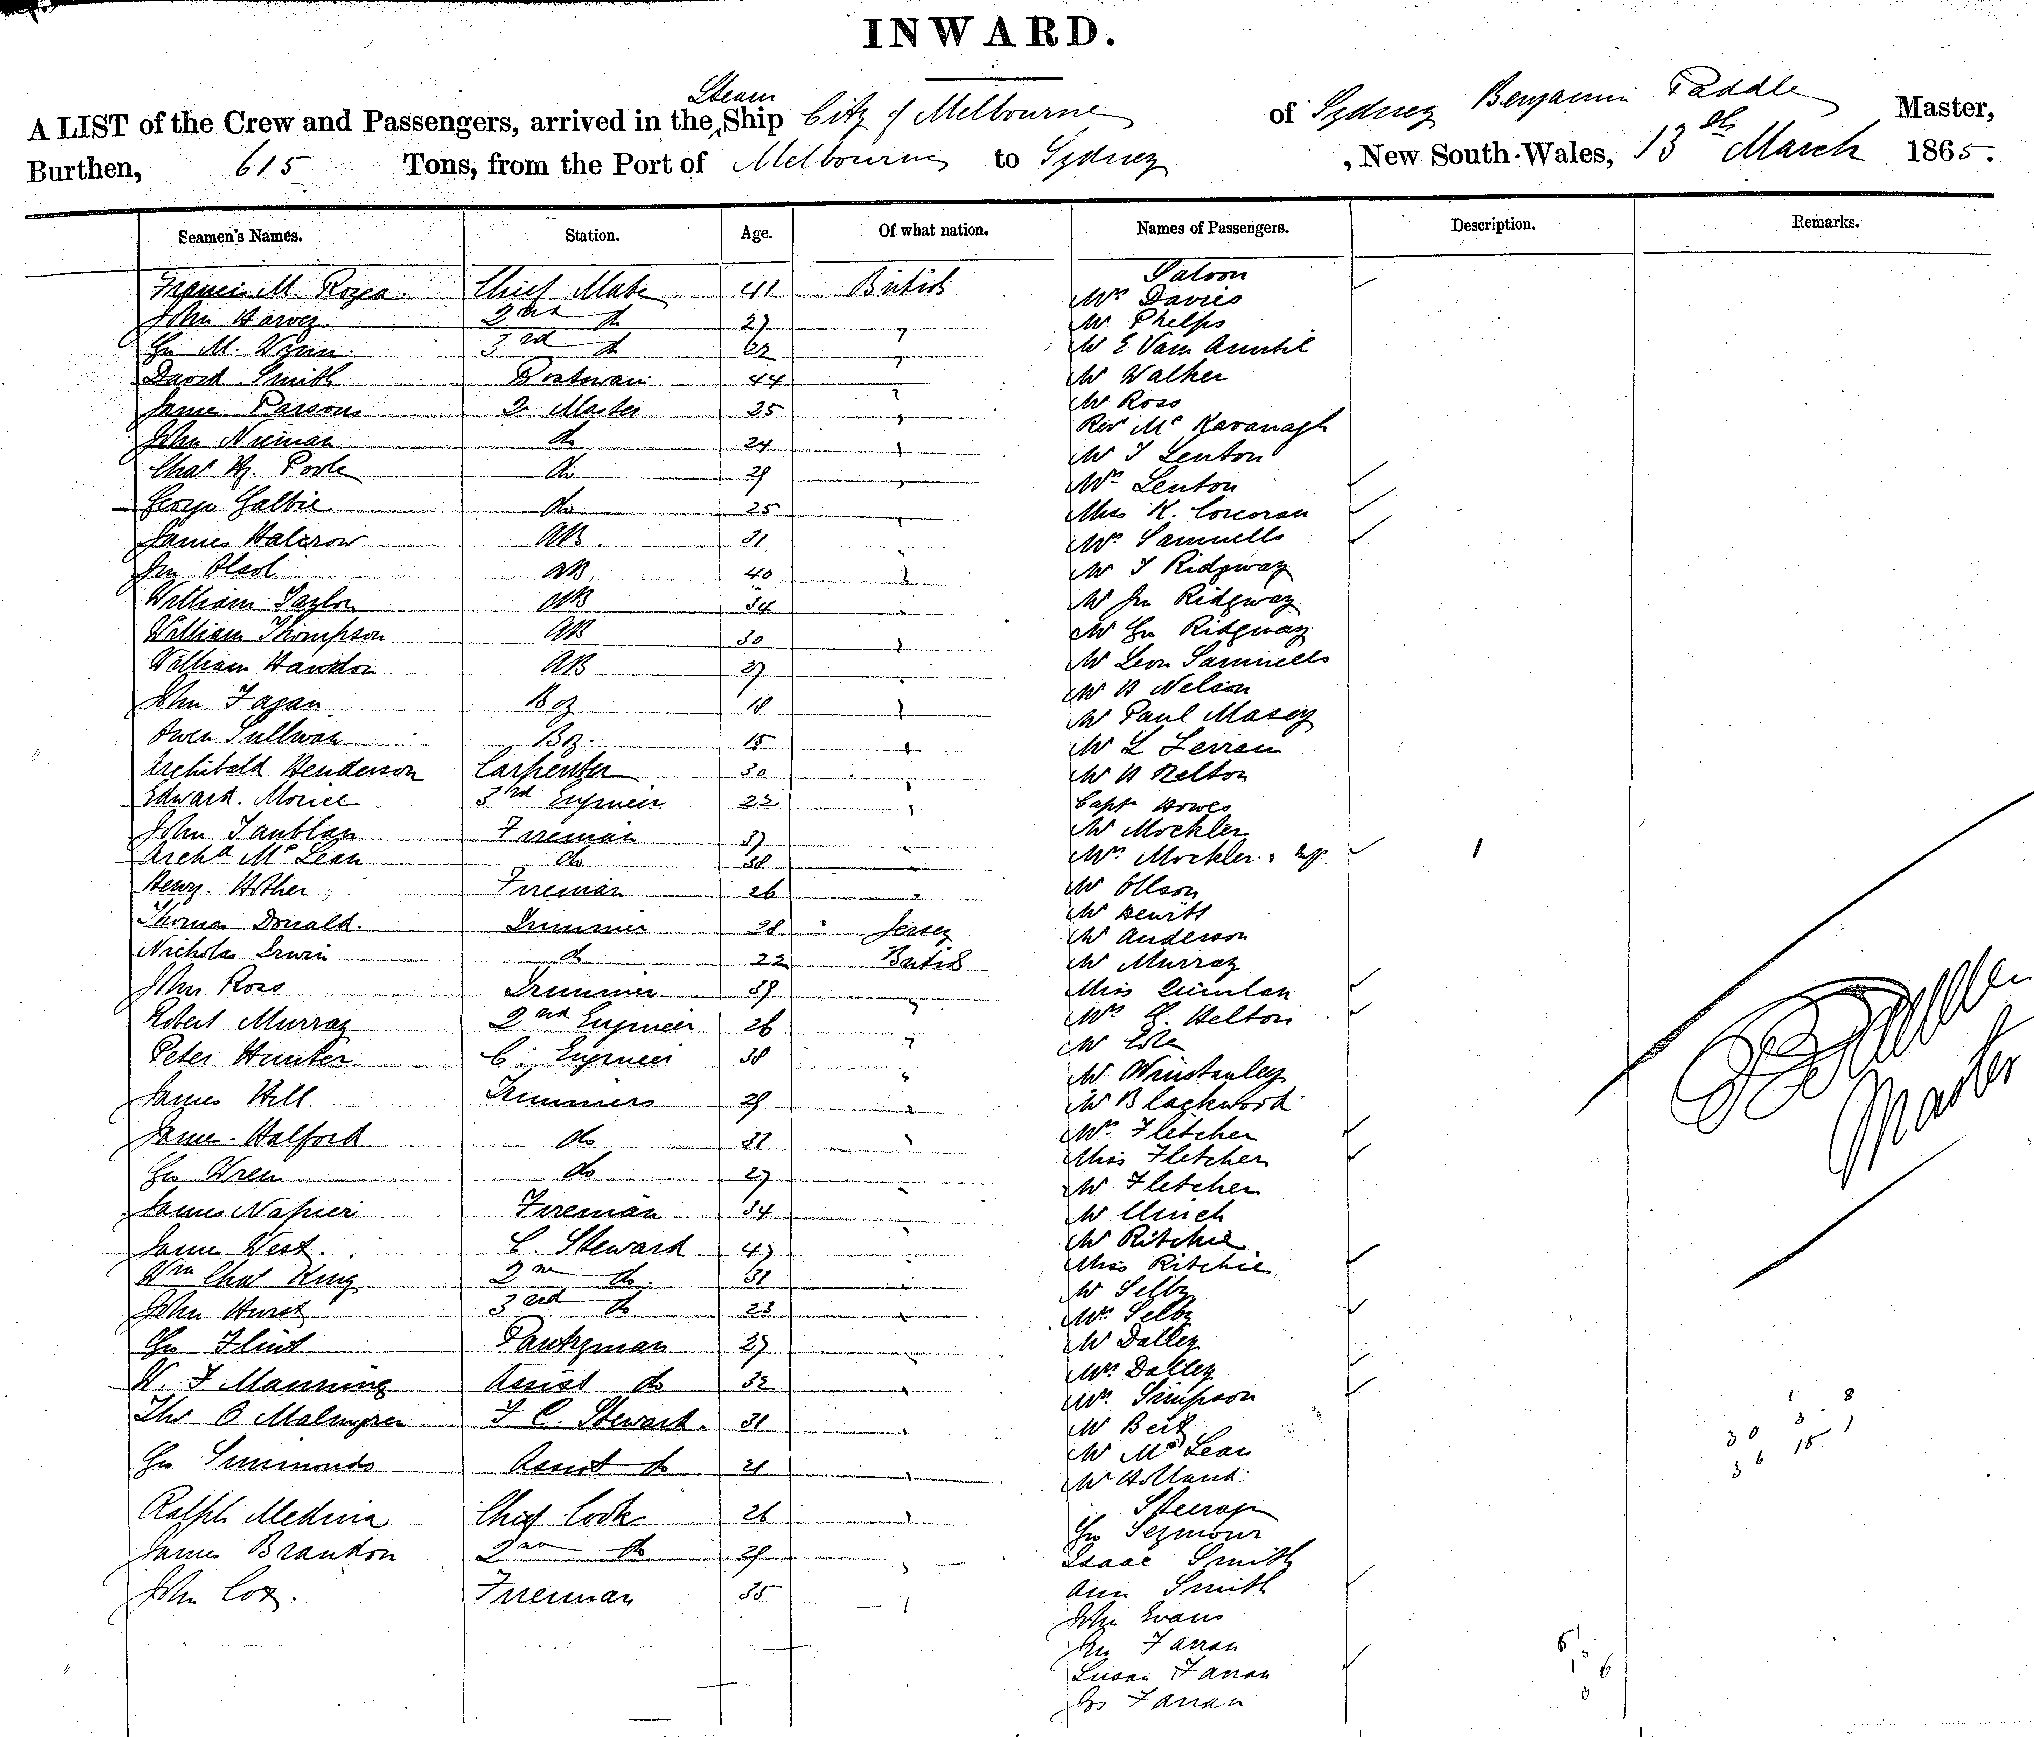 INWARD.
A LIST of the Crew and Passengers, arrived in the Steam Ship City of Melbourne of Sydney Benjamin Paddle Master,
Burthen, 615 Tons, from the Port of Melbourne to Sydney, New South-Wales, 13th March 1865.
Seamen's Names. Station. Age. Of what nation. Names of Passengers. Description. Remarks.
Saloon
Chief Mate 41 British Mrs Davies
John Harvey 2nd do 27 " Mr Phelps
Geo M. 3rd do " Mr E Vam
David Smith Boatswain 44 " Mr Walker
James Parsons Q Master 25 " Mr Ross
John Nieman do 24 " Revd Mr Kavanagh
Chas Hy. Poole do 29 " Mr J Lenton
George do 25 " Mrs Lenton
James Halcrow AB 31 " Miss K. Corcoran
AB 40 " Mrs Samuells
William Taylor AB 34 " Mr J Ridgway
William Thompson AB 30 " Mr Jn Ridgway
William Hawdon AB 27 " Mr Geo Ridgway
John Fagan Boy 18 " Mr Leon Samuells
Owen Sullivan Boy 15 " Mr H Nelson
Archibald Henderson Carpenter 30 " Mr Paul Masey
Edward Morice 3rd Engineer 22 " Mr L
John Fireman 37 " Mr H Kelton
Archd McLean do 38 " Capt Howes
Henry Hother Fireman 26 " Mr Mockler
Thomas Donald Trimmer 28 " Jersey Mrs Mockler & Inft 1
Nicholas Irwin do 22 British Mr Ollson
John Ross Trimmer 39 " Mr Hewitt
Robert Murray 2nd Engineer 26 " Mr Anderson
Peter Hunter C. Engineer 38 " Mr Murray
James Hill Trimmers 29 " Miss Quinlan
James Halford do 31 " Mrs G. Helton
Geo Wren do 27 " Mr
James Napier Fireman 34 " Mr Winstanley
James West C. Steward 47 " Mr Blackwood
Wm Chas King 2nd do 31 " Mrs Fletcher
John Hurst 3rd do 23 " Miss Fletcher
Geo Flint Pantryman 27 " Mr Fletcher
W. F Manning Assist do 32 " Mr Ulrich
Thos O Malmgren F C. Steward 31 " Mr Ritchie
Geo Simmonds Assist do 21 " Miss Ritchie
Ralph Medina Chief Cook 26 " Mr Selby
James Brandon 2nd do 29 " Mrs Selby
John Cox. Fireman 35 " Mr Dalley
Mrs Dalley
Mrs Simpson
Mr
Mr McLean
Mr Holland
Steerage
Geo Seymour
Isaac Smith
Ann Smith
John Evans
Farran
Susan Farran
Farran
Master